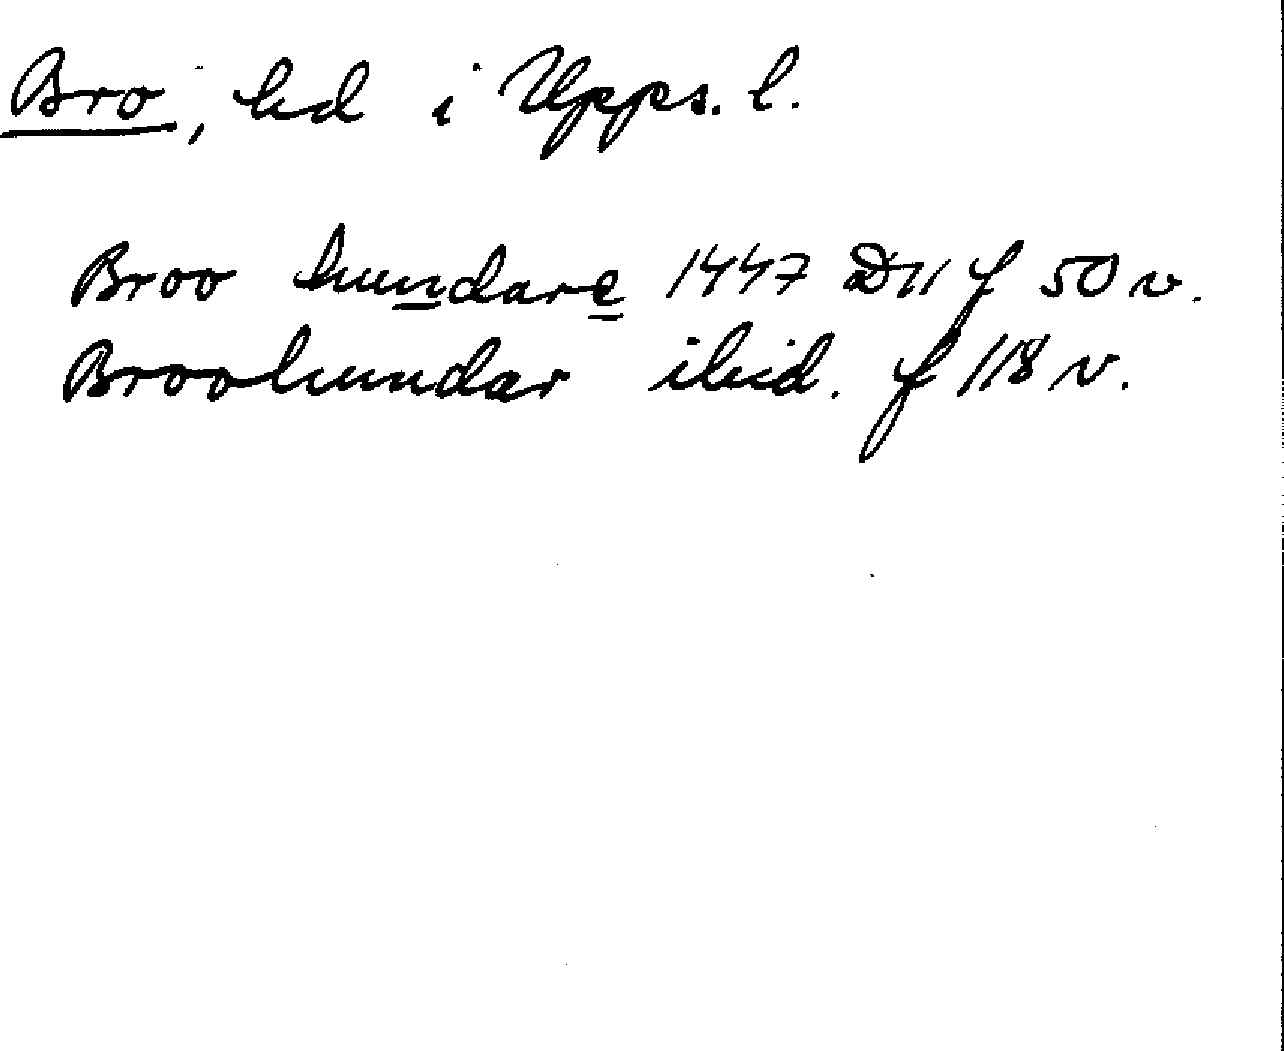 Bro, hd i Upps. l.
Broo hundare 1447 D11 f 50 v.
Broohundar ibid. f 118 v.